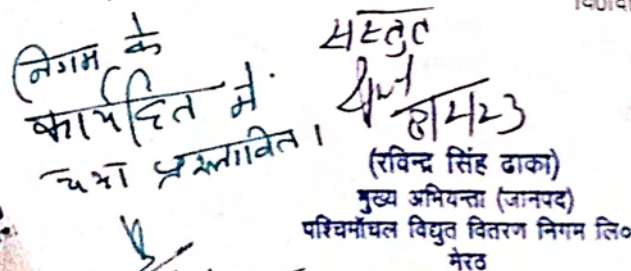 निगम के
कार्यहित में
यथा प्रस्तावित।
संस्तुत
(रविन्द्र सिंह ढाका)
मुख्य अभियन्ता (जानपद)
पश्चिमाँचल विद्युत वितरण निगम लि०
मेरठ